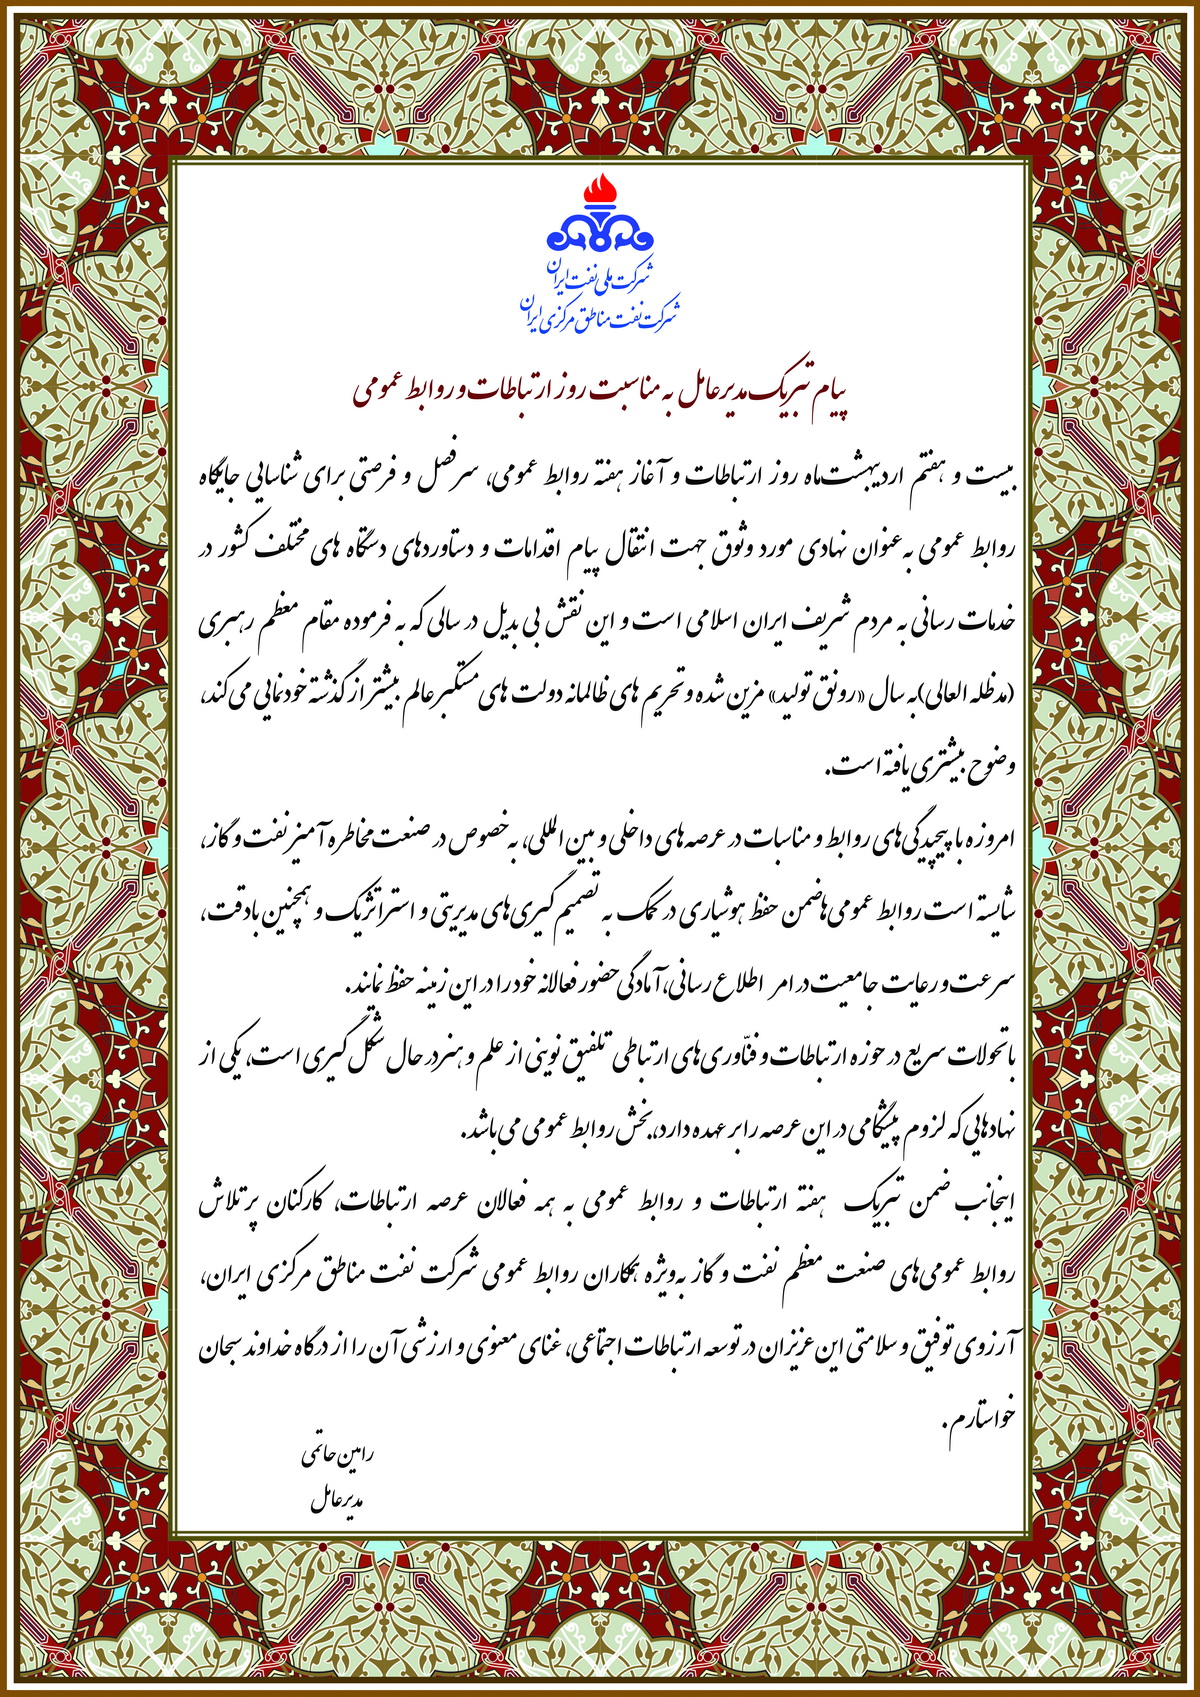 شرکت ملی نفت ایران
شرکت نفت مناطق مرکزی ایران
پیام تبریک مدیرعامل به مناسبت روز ارتباطات و روابط عمومی
بیست و هفتم اردیبهشت‌ماه روز ارتباطات و آغاز هفته روابط عمومی، سرفصل و فرصتی برای شناسایی جایگاه
روابط عمومی به‌عنوان نهادی مورد وثوق جهت انتقال پیام اقدامات و دستاوردهای دستگاه های مختلف کشور در
خدمات رسانی به مردم شریف ایران اسلامی است و این نقش بی بدیل در سالی که به فرموده مقام معظم رهبری
(مدظله العالی)به سال «رونق تولید» مزین شده و تحریم های ظالمانه دولت های مستکبر عالم بیشتر از گذشته خودنمایی می کند،
وضوح بیشتری یافته است.
امروزه با پیچیدگی‌های روابط و مناسبات در عرصه‌های داخلی و بین المللی، به خصوص در صنعت مخاطره آمیز نفت و گاز،
شایسته است روابط عمومی‌ها ضمن حفظ هوشیاری در کمک به تصمیم گیری‌های مدیریتی و استراتژیک و همچنین با دقت،
سرعت و رعایت جامعیت در امر اطلاع رسانی، آمادگی حضور فعالانه خود را در این زمینه حفظ نمایند.
با تحولات سریع در حوزه ارتباطات و فنّاوری‌های ارتباطی تلفیق نوینی از علم و هنر در حال شکل گیری است، یکی از
نهادهایی که لزوم پیشگامی در این عرصه را بر عهده دارد، بخش روابط عمومی می‌باشد.
اینجانب ضمن تبریک هفته ارتباطات و روابط عمومی به همه فعالان عرصه ارتباطات، کارکنان پرتلاش
روابط عمومی‌های صنعت معظم نفت و گاز به‌ویژه همکاران روابط عمومی شرکت نفت مناطق مرکزی ایران،
آرزوی توفیق و سلامتی این عزیزان در توسعه ارتباطات اجتماعی، غنای معنوی و ارزشی آن را از درگاه خداوند سبحان
خواستارم.
رامین حاتمی
مدیرعامل